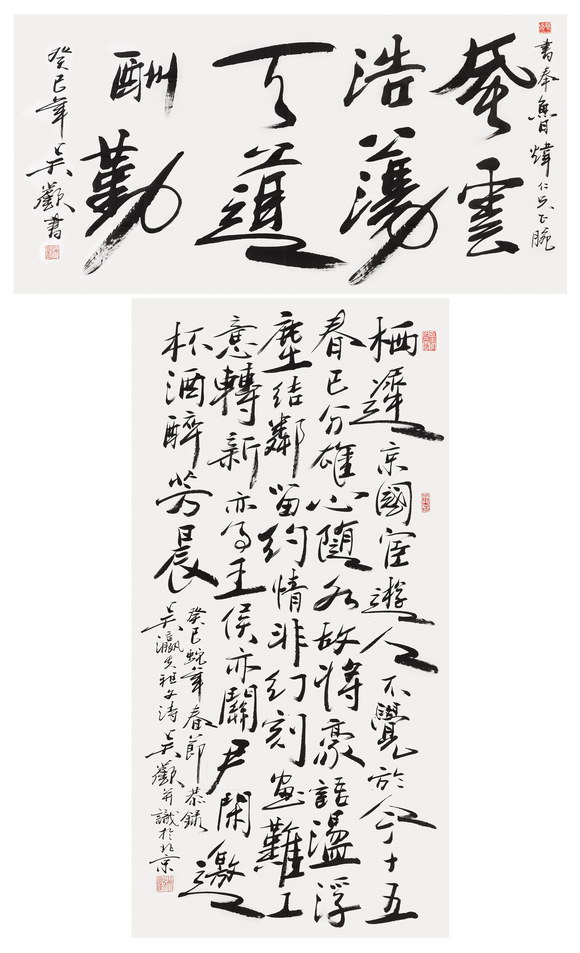 書奉魯煒仁兄正腕
風雲
浩蕩
天道
酬勤
癸巳年吴歡書
栖遲京國宦遊人不覺於今十五
春已分雄心隨水故將豪語盪浮
塵結鄰留約情非幻刻畫難工
意轉新亦為王侯亦關尹閑邀
杯酒醉芳晨
癸巳蛇年春節恭錄
吴瀛先祖父詩吴歡并識於北京